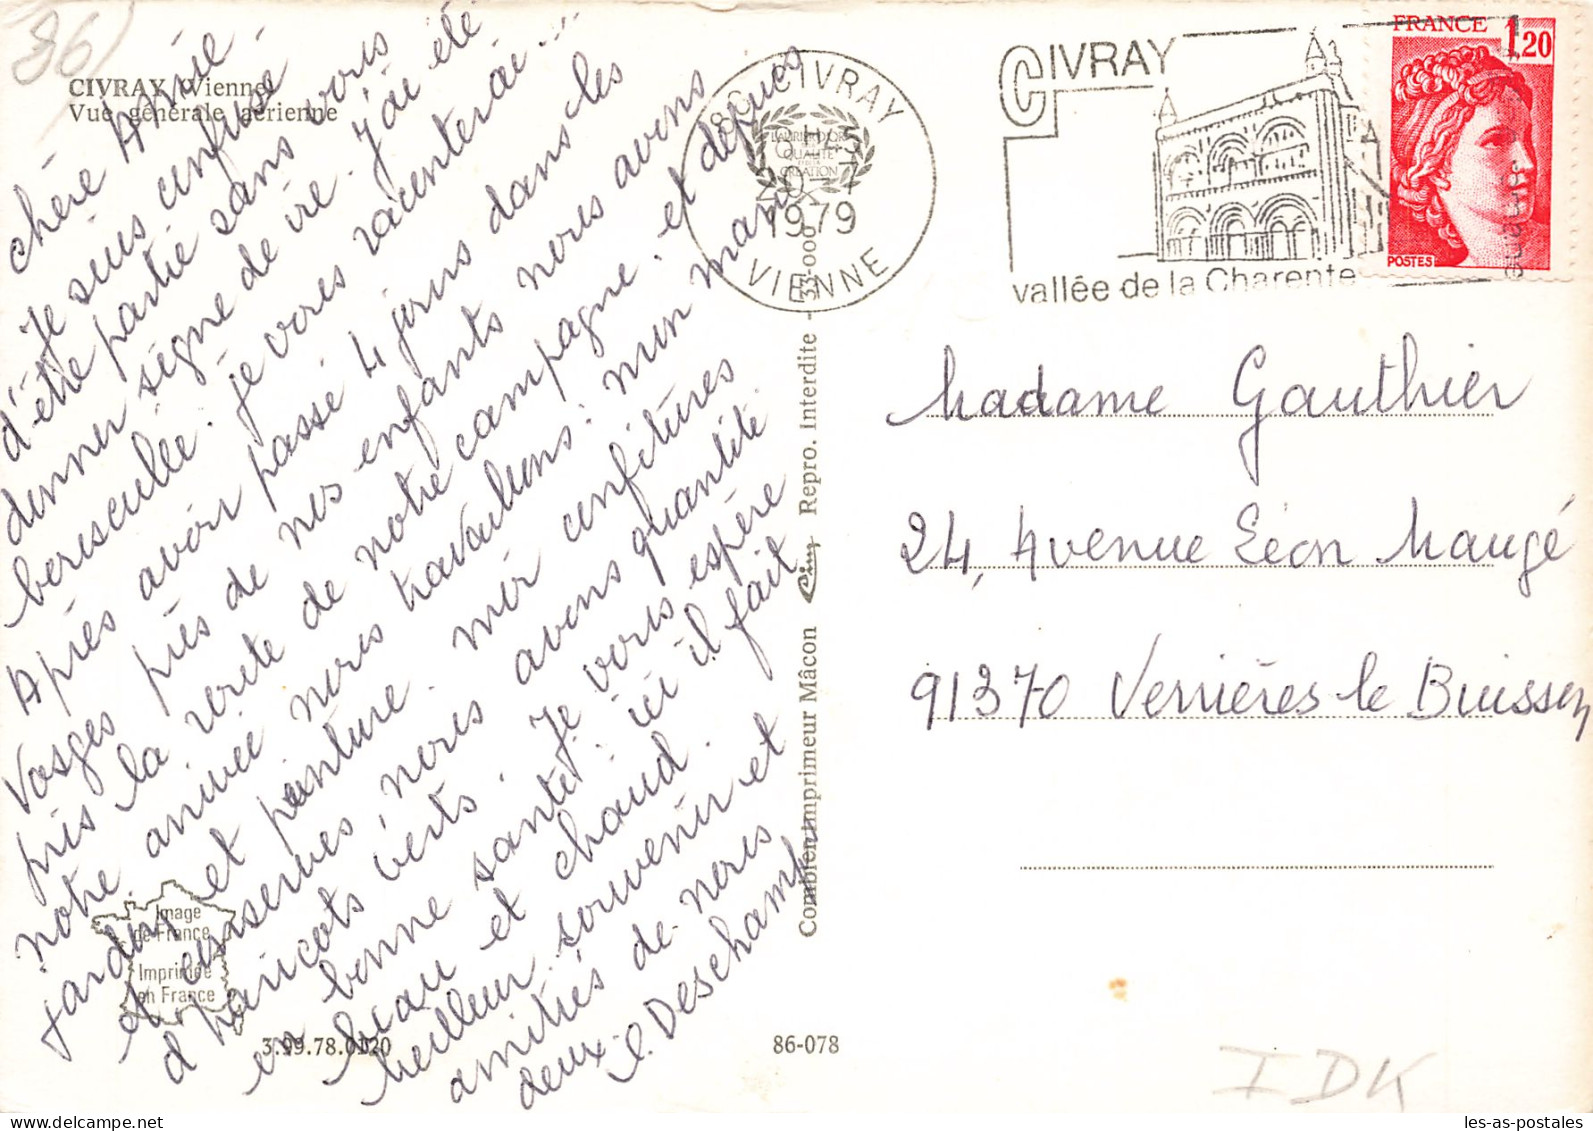 86
CIVRAY (Vienne)
Vue générale aérienne
chère Amie
Je suis confuse
d'être partie sans vous
donner signe de vie. J'ai été
bousculée. je vous raconterai...
Après avoir passé 4 jours dans les
Vosges près de nos enfants nous avons
pris la route de notre campagne. et depuis
notre arrivée nous travaillons: mon mari
jardin et peinture. moi confitures
et conserves, nous avons quantité
d'haricots verts. Je vous espère
en bonne santé. ici il fait
beau et chaud.
meilleur souvenir et
amitiés de nous
deux. E. Deschamps
Image
de France
Imprimée
en France
3.99.78.0120
86-078
Combier imprimeur Mâcon Cim Repro. Interdite - 33-000
86 CIVRAY
LAURIER D'OR
QUALITÉ
CRÉATION
1979
VIENNE
CIVRAY
vallée de la Charente
FRANCE 1,20
POSTES
Madame Gauthier
24, Avenue Léon Maugé
91370 Verrières-le Buisson
IDK
les-as-postales.com